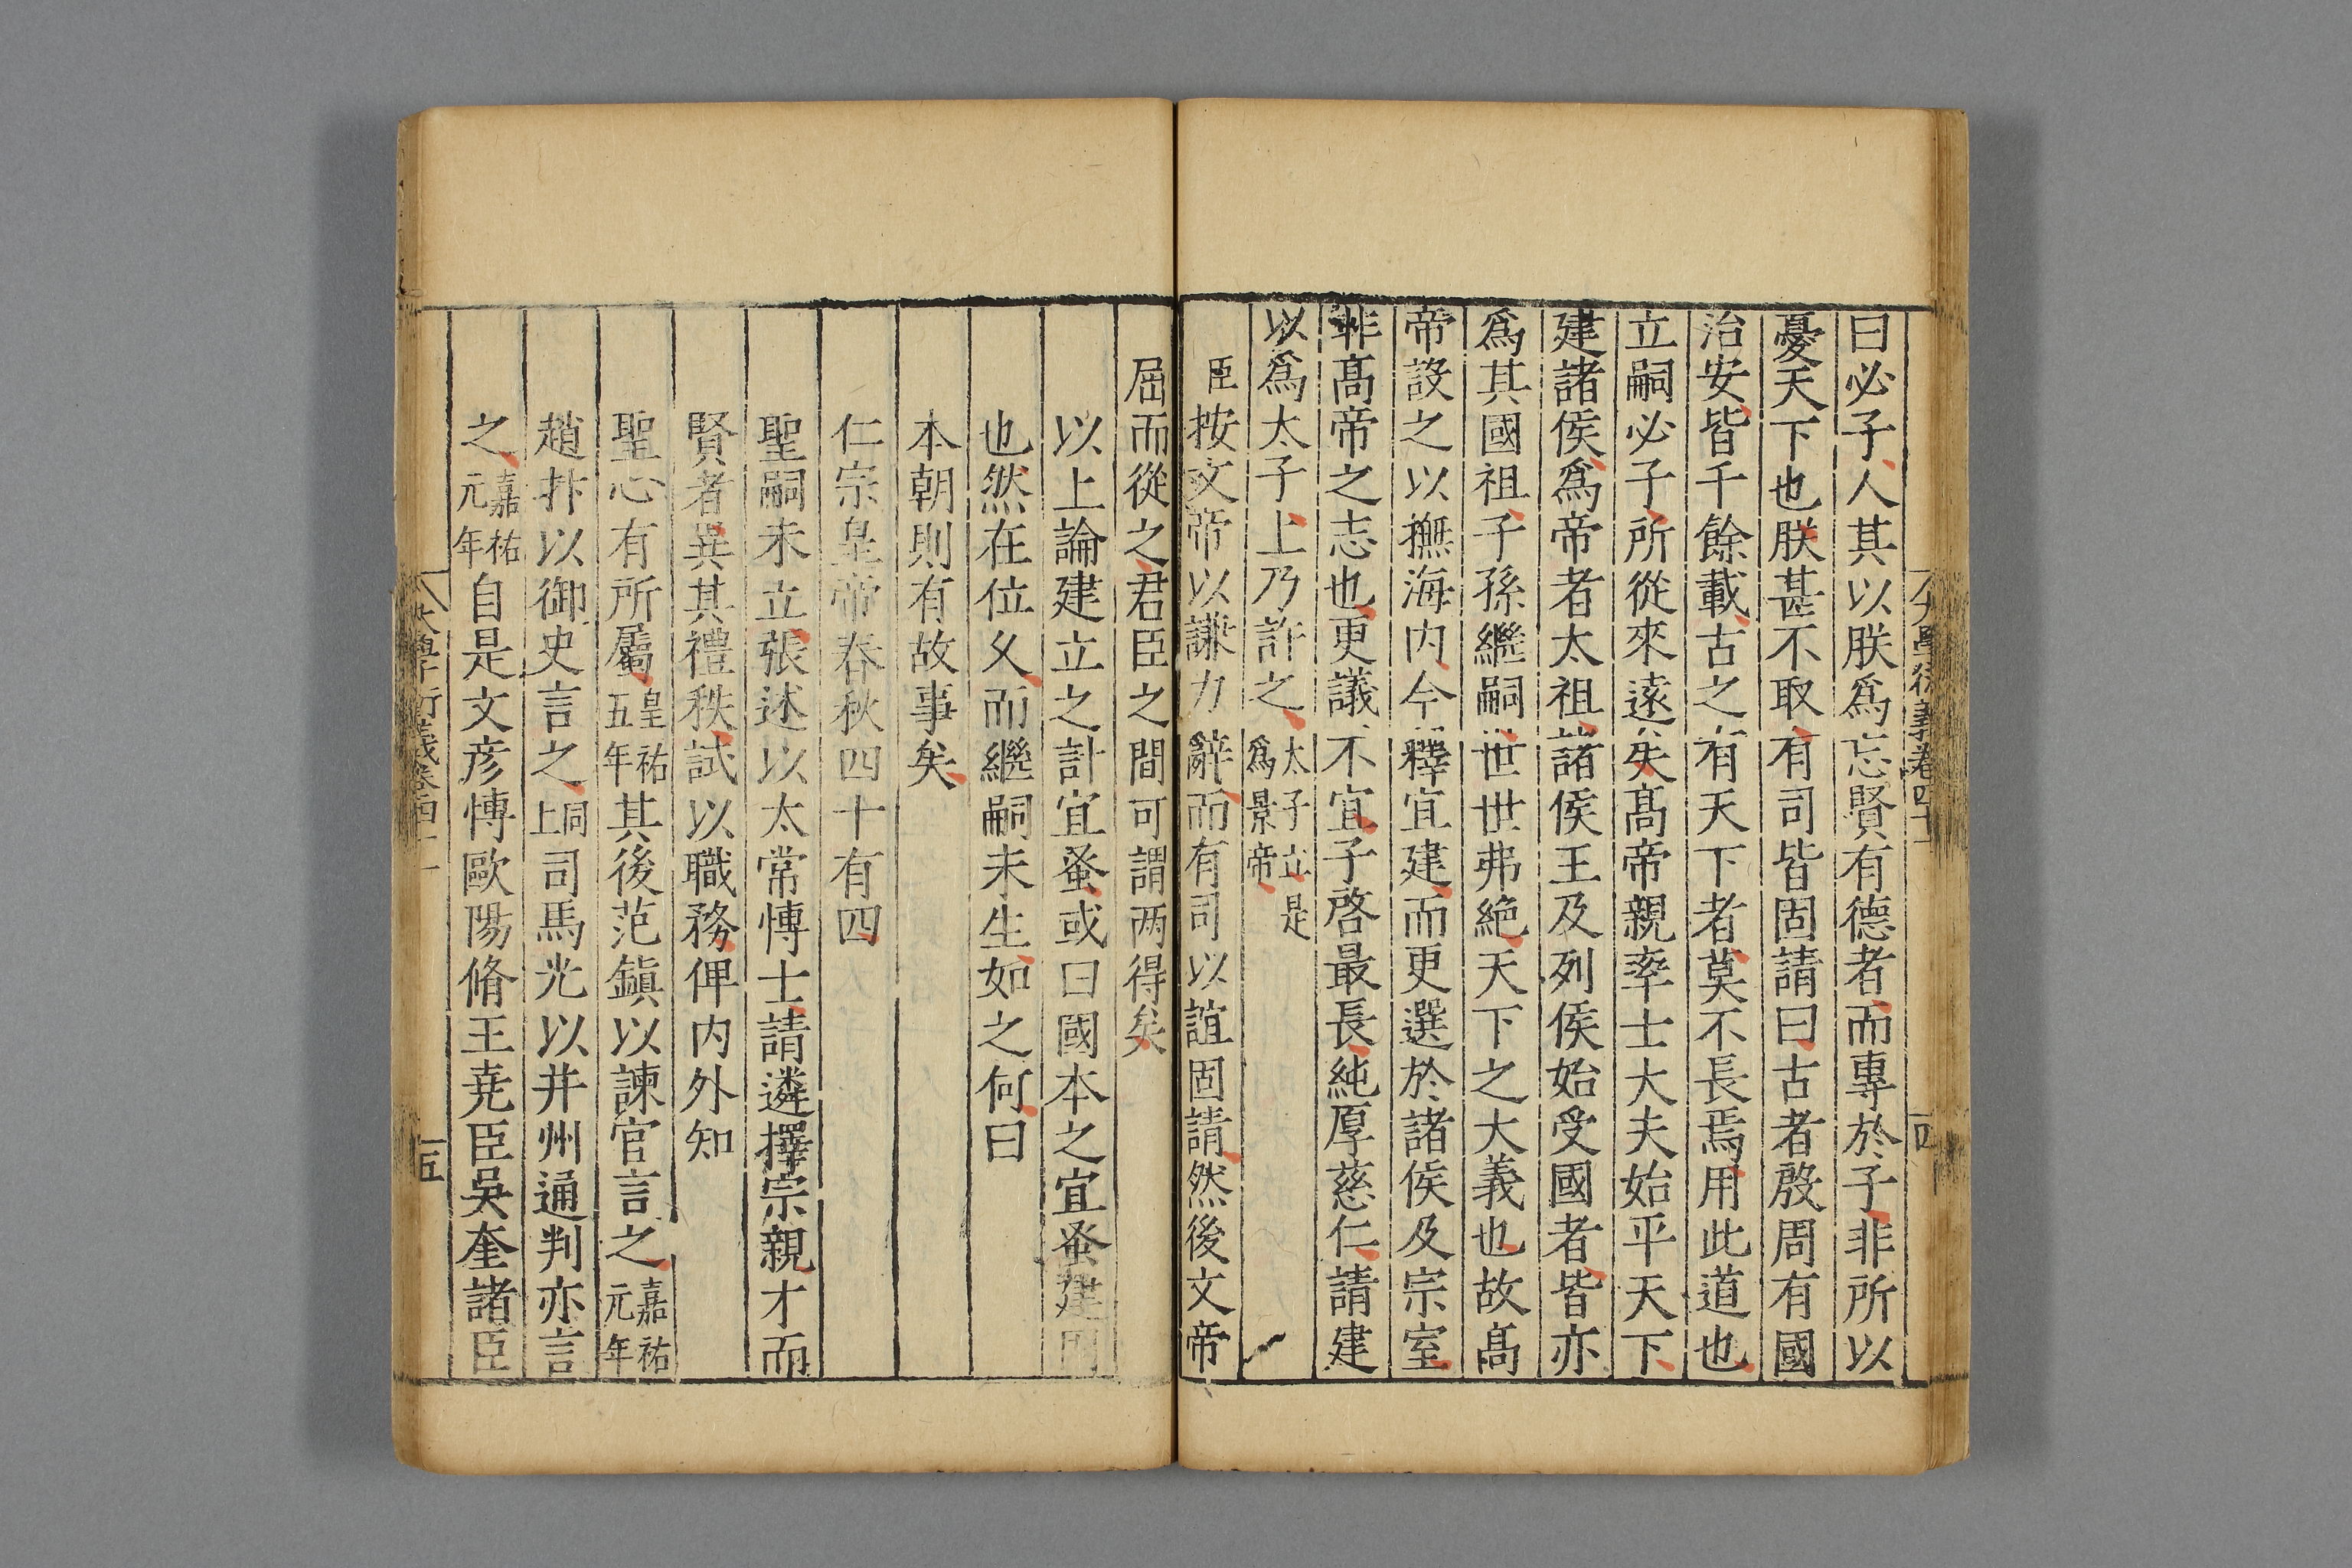 大學衍義卷四十一
四
曰必子人其以朕爲忘賢有德者而專於子非所以
憂天下也朕甚不取有司皆固請曰古者殷周有國
治安皆千餘載古之有天下者莫不長焉用此道也
立嗣必子所從來遠矣髙帝親率士大夫始平天下
建諸侯爲帝者太祖諸侯王及列侯始受國者皆亦
爲其國祖子孫繼嗣世世弗絶天下之大義也故髙
帝設之以撫海内今釋宜建而更選於諸侯及宗室
非髙帝之志也更議不宜子啓最長純厚慈仁請建
以爲太子上乃許之太子立是爲景帝
臣按文帝以謙力辭而有司以誼固請然後文帝
屈而從之君臣之間可謂两得矣
以上論建立之計宜蚤或曰國本之宜蚤建固
也然在位乆而繼嗣未生如之何曰
本朝則有故事矣
仁宗皇帝春秋四十有四
聖嗣未立張述以太常愽士請遴擇宗親才而
賢者異其禮秩試以職務俾内外知
聖心有所屬皇祐五年其後范鎮以諫官言之嘉祐元年
趙抃以御史言之同上司馬光以并州通判亦言
之嘉祐元年自是文彦愽歐陽脩王尭臣吳奎諸臣
大學衍義卷四十一
五